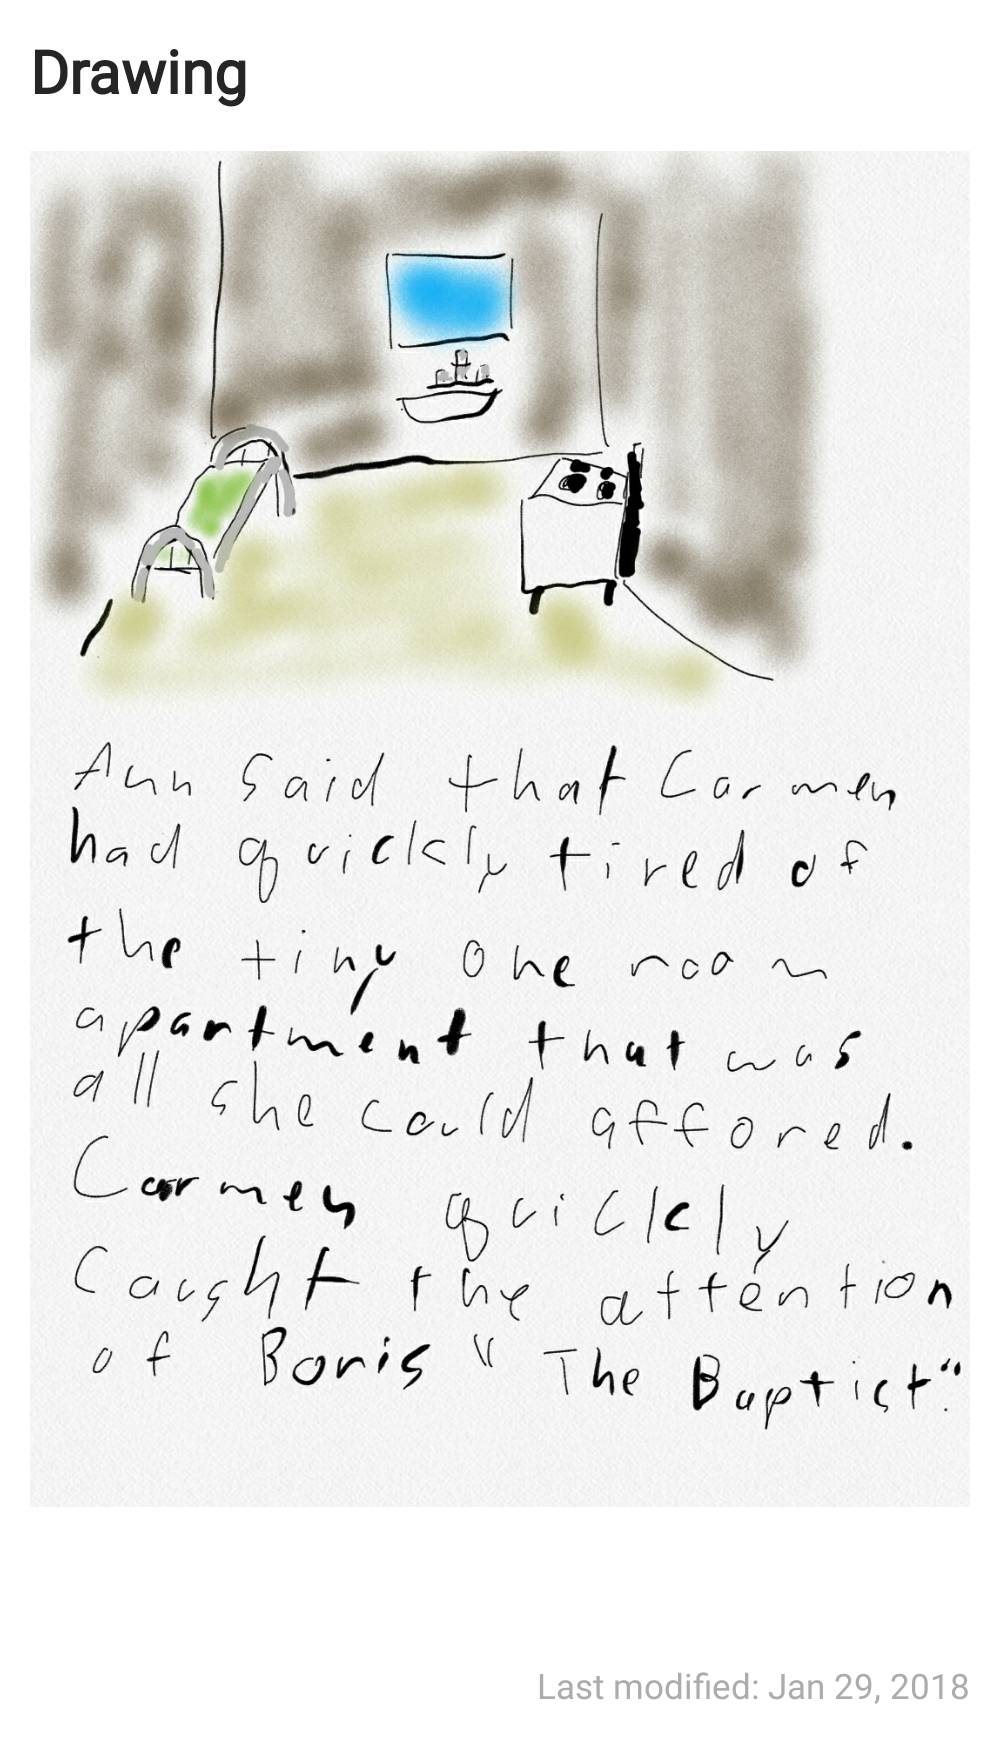 Drawing
Ann said that Carmen
had quickly tired of
the tiny one room
apartment that was
all she could affored.
Carmen quickly
caught the attention
of Boris "The Baptist".
Last modified: Jan 29, 2018